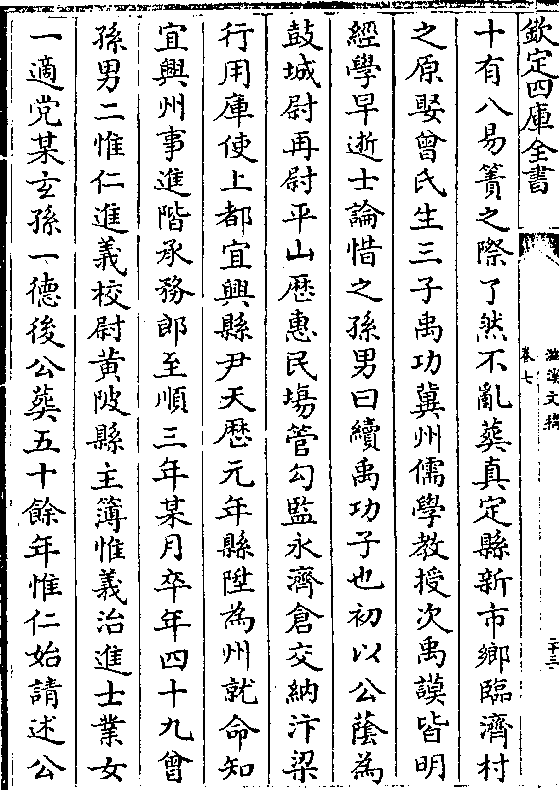 欽定四庫全書
卷七
十有八易簀之際了然不亂葬真定縣新市鄉臨濟村
之原娶曾氏生三子禹功冀州儒學教授次禹謨皆明
經學早逝士論惜之孫男曰續禹功子也初以公蔭為
鼓城尉再尉平山歷惠民場管勾監永濟倉交納汴梁
行用庫使上都宜興縣尹天歷元年縣陞為州就命知
宜興州事進階承務郎至順三年某月卒年四十九曾
孫男二惟仁進義校尉黃陂縣主簿惟義治進士業女
一適党某玄孫一德後公葬五十餘年惟仁始請述公